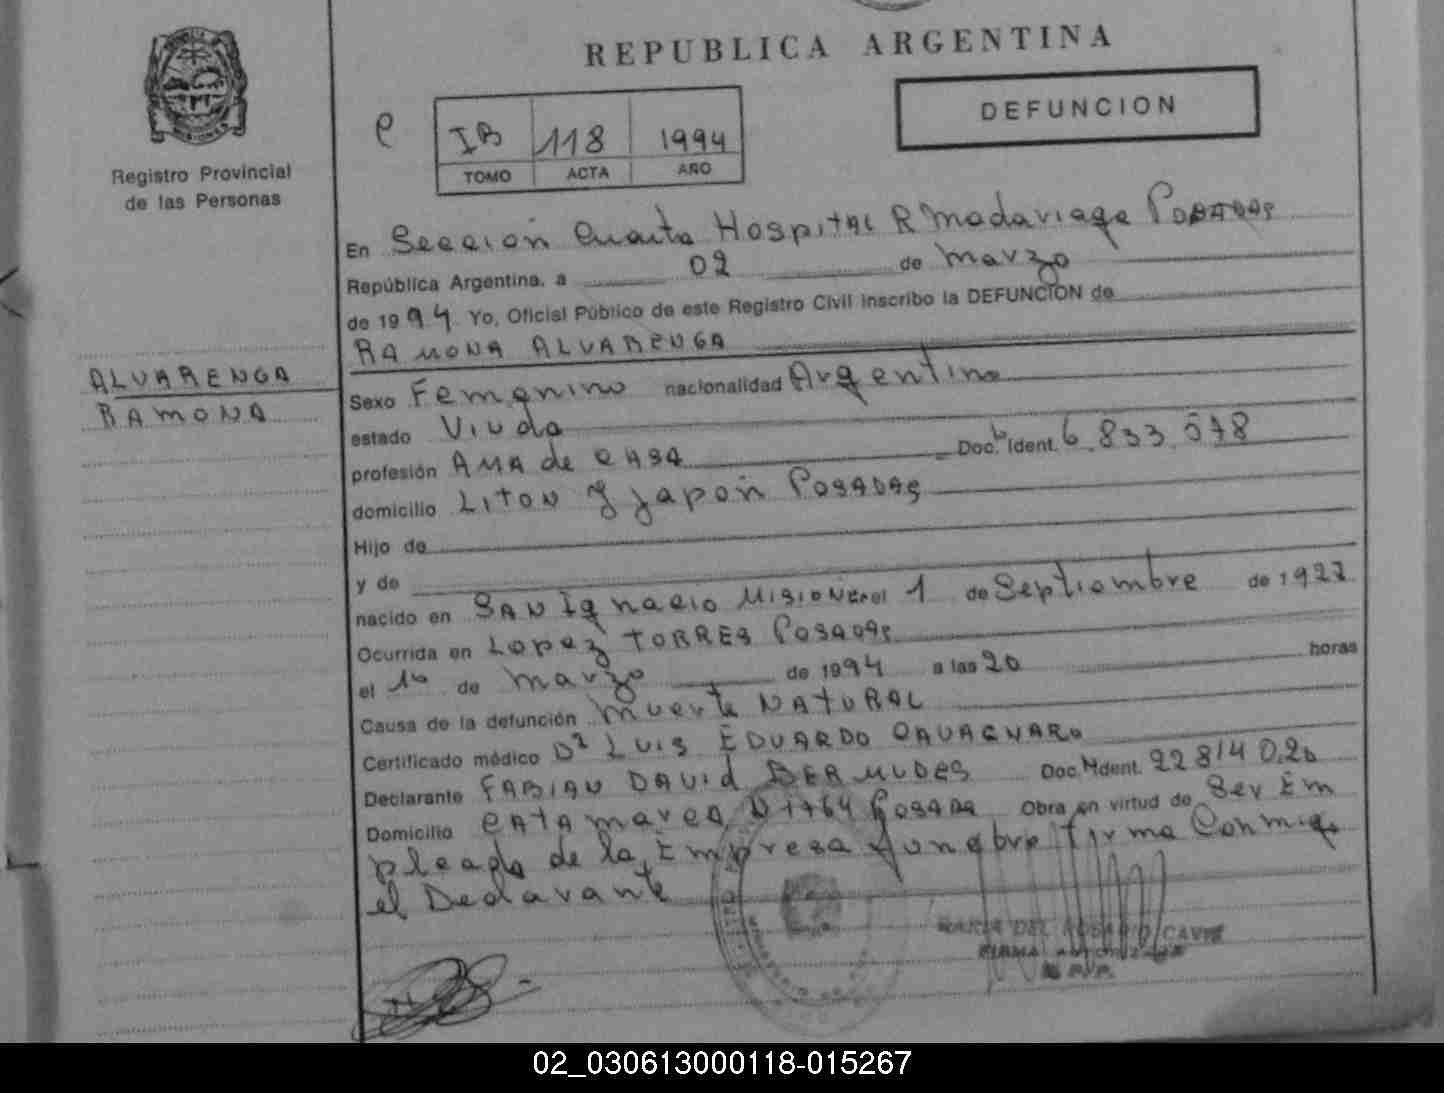 REPUBLICA ARGENTINA
DEFUNCION
MISIONES
Registro Provincial
de las Personas
IB 118 1994
TOMO ACTA AÑO
En Sección Cuarta Hospital R Madariaga Posadas
República Argentina, a 02 de marzo
de 1994 Yo, Oficial Público de este Registro Civil inscribo la DEFUNCION de
RAMONA ALVARENGA
ALVARENGA
RAMONA
Sexo Femenino nacionalidad Argentina
estado Viuda
profesión AMA de CASA Doc. Ident. 6.833.078
domicilio LITON y Japón POSADAS
Hijo de
y de
nacido en SAN Ignacio MISIONES el 1 de Septiembre de 1927
Ocurrida en Lopez TORRES POSADAS
el 1º de marzo de 1994 a las 20 horas
Causa de la defunción muerte NATURAL
Certificado médico Dr LUIS EDUARDO CAVAGNARO
Declarante FABIAN DAVID BERMUDES Doc. Ident. 22814020
Domicilio CATAMARCA N 1764 POSADAS Obra en virtud de Ser Em
pleado de la Empresa funebre firma Conmigo
el Declarante
MARIA DEL ROSARIO CAVIE
FIRMA AUTORIZADA
R.P.P.
02_030613000118-015267